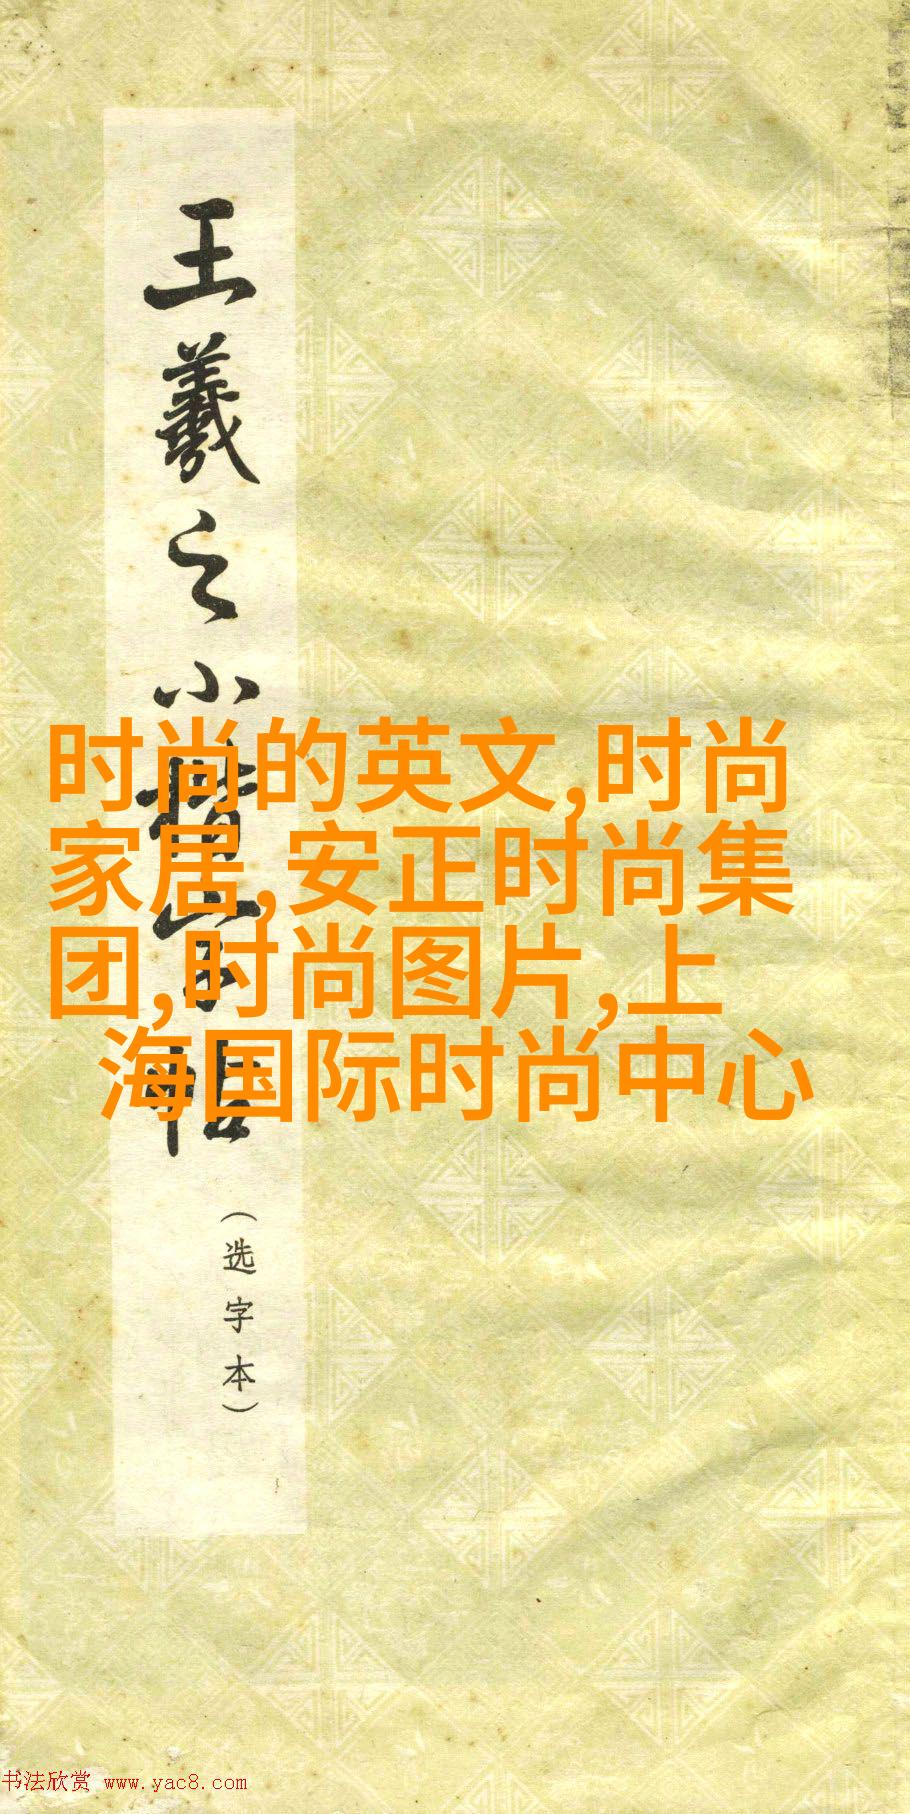 王羲之小楷字帖
(选字本)
时尚的英文,时尚
家居,安正时尚集
团,时尚图片,上
海国际时尚中心
书法欣赏 www.yac8.com